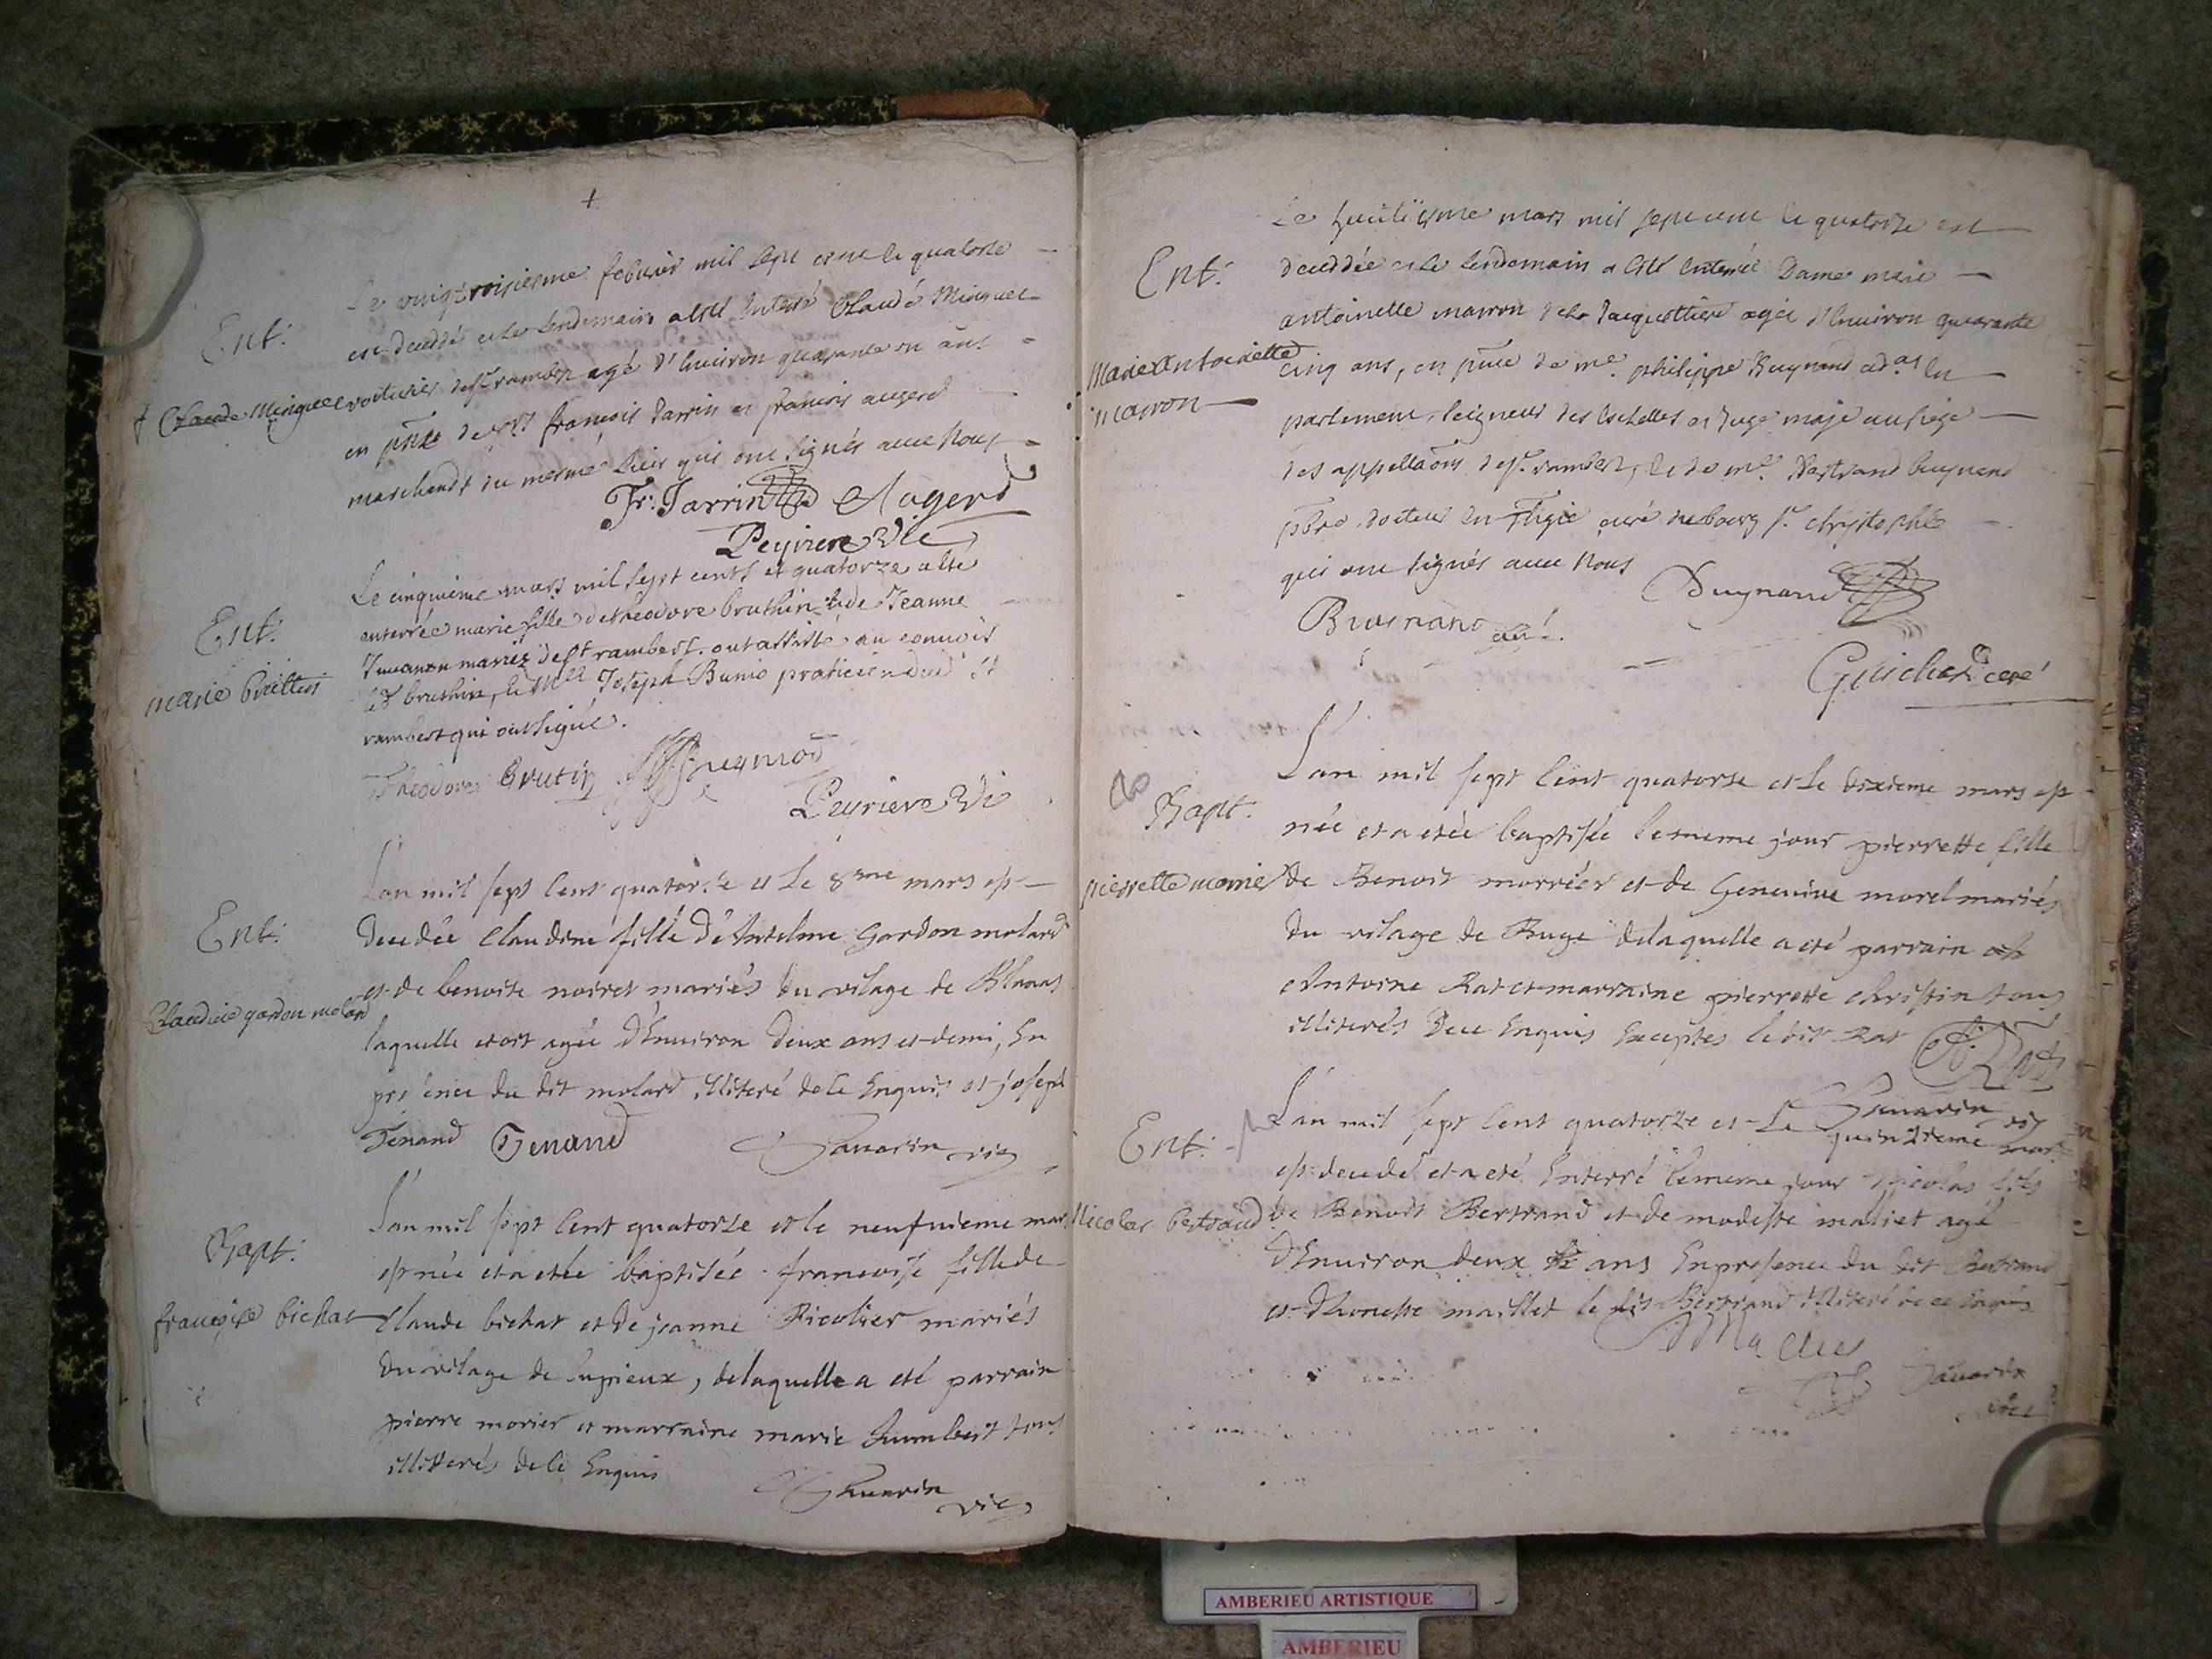 +
Ent:
Claude Minguet
Le vingt roisiesme febvrier mil sept cent le quatorze
est deceddé et le lendemain a esté enterré Claude Minguet
voiturier de st rambert agé d'environ quarante un ans
en pnce de srs françois Jarrin et francois augerd
marchands du mesme lieu qui ont signés avec Nous
Fr: Jarrin Augerd
Peyriere Vic
Ent:
marie
Le cinquième mars mil sept cents et quatorze a été
enterrée marie fille de theodore bruthin & de Jeanne
mariez de st rambert. ont assisté au convois
led bruthin, & Mre Joseph praticien dud st
rambert qui ont signé.
Theodore Brutin
Peyriere Vic
Ent:
Claudine gordon molard
L'an mil sept cent quatorze et le 8me mars est
decedée Claudine fille d'Antelme Gordon molard
et de benoite noiret mariés du vilage de Blanas
laquelle etoit agée d'Environ deux ans et demi, En
presence du dit molard illiteré de ce Enquis et joseph
Tenand Tenand Savarin vic
Bapt:
françoise bichat
L'an mil sept cent quatorze et le neufvieme mars
est née et a etée baptisée francoise fille de
Claude bichat et de jeanne Ricolier mariés
du vilage de Supieux, de laquelle a eté parrain
pierre morier et marraine marie humbert tous
illitterés de ce Enquis
Savarin vic
Ent:
Marie Antoinette
marron
Le huictiesme mars mil sept cent le quatorze est
deceddée et le lendemain a esté enterrée Dame marie
antoinette marron de la Jacquottiere agée d'environ quarante
cinq ans, en pnce de me. philippe Buynand ad.at en
parlement, seigneur des Eschelles et Juge maje au siege
des appellaons de st. rambert, & de mre. Bertrand buynand
pbre docteur en Thgie curé du bourg st. christophle
qui ont signés avec Nous Buynand
Buynand curé.
Guichard curé
Bapt.
pierrette morrier
L'an mil sept cent quatorze et le dixieme mars est
née et a etée baptisée le meme jour pierrette fille
de Benoit morrier et de Genevive morel mariés
du vilage de Buge de laquelle a eté parrain
Antoine Rat et marraine pierrette christin tous
illiterés de ce Enquis Exceptes le dit Rat A. Rat
Savarin vic
Ent:
Nicolas bertrand
L'an mil sept cent quatorze et le quinzieme mars
est decedé et a eté Enterré le meme jour Nicolas fils
de Benoit Bertrand et de modeste maliet agé
d'Environ deux ans En presence du dit Bertrand
et d'honeste maillet le dit Bertrand illiteré de ce Enquis
Savarin
vic
AMBERIEU ARTISTIQUE
AMBERIEU